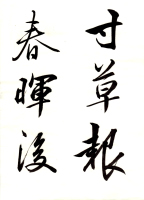 寸草報
春暉後